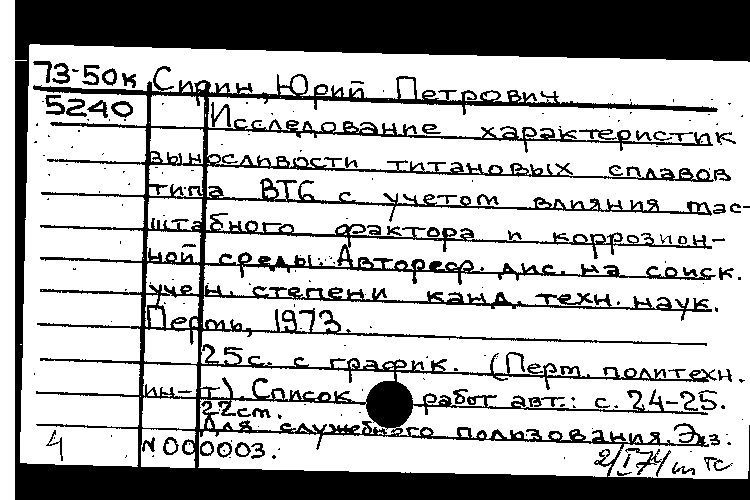 73-50к Сирин, Юрий Петрович
5240
Исследование характеристик
выносливости титановых сплавов
типа ВТ6 с учетом влияния мас-
штабного фактора и коррозион-
ной среды. Автореф. дис. на соиск.
учен. степени канд. техн. наук.
Пермь, 1973.
25с. с график. (Перм. политехн.
ин-т). Список работ авт.: с. 24-25.
22см.
Для служебного пользования. Экз.
N 000003.
4
2/I 74